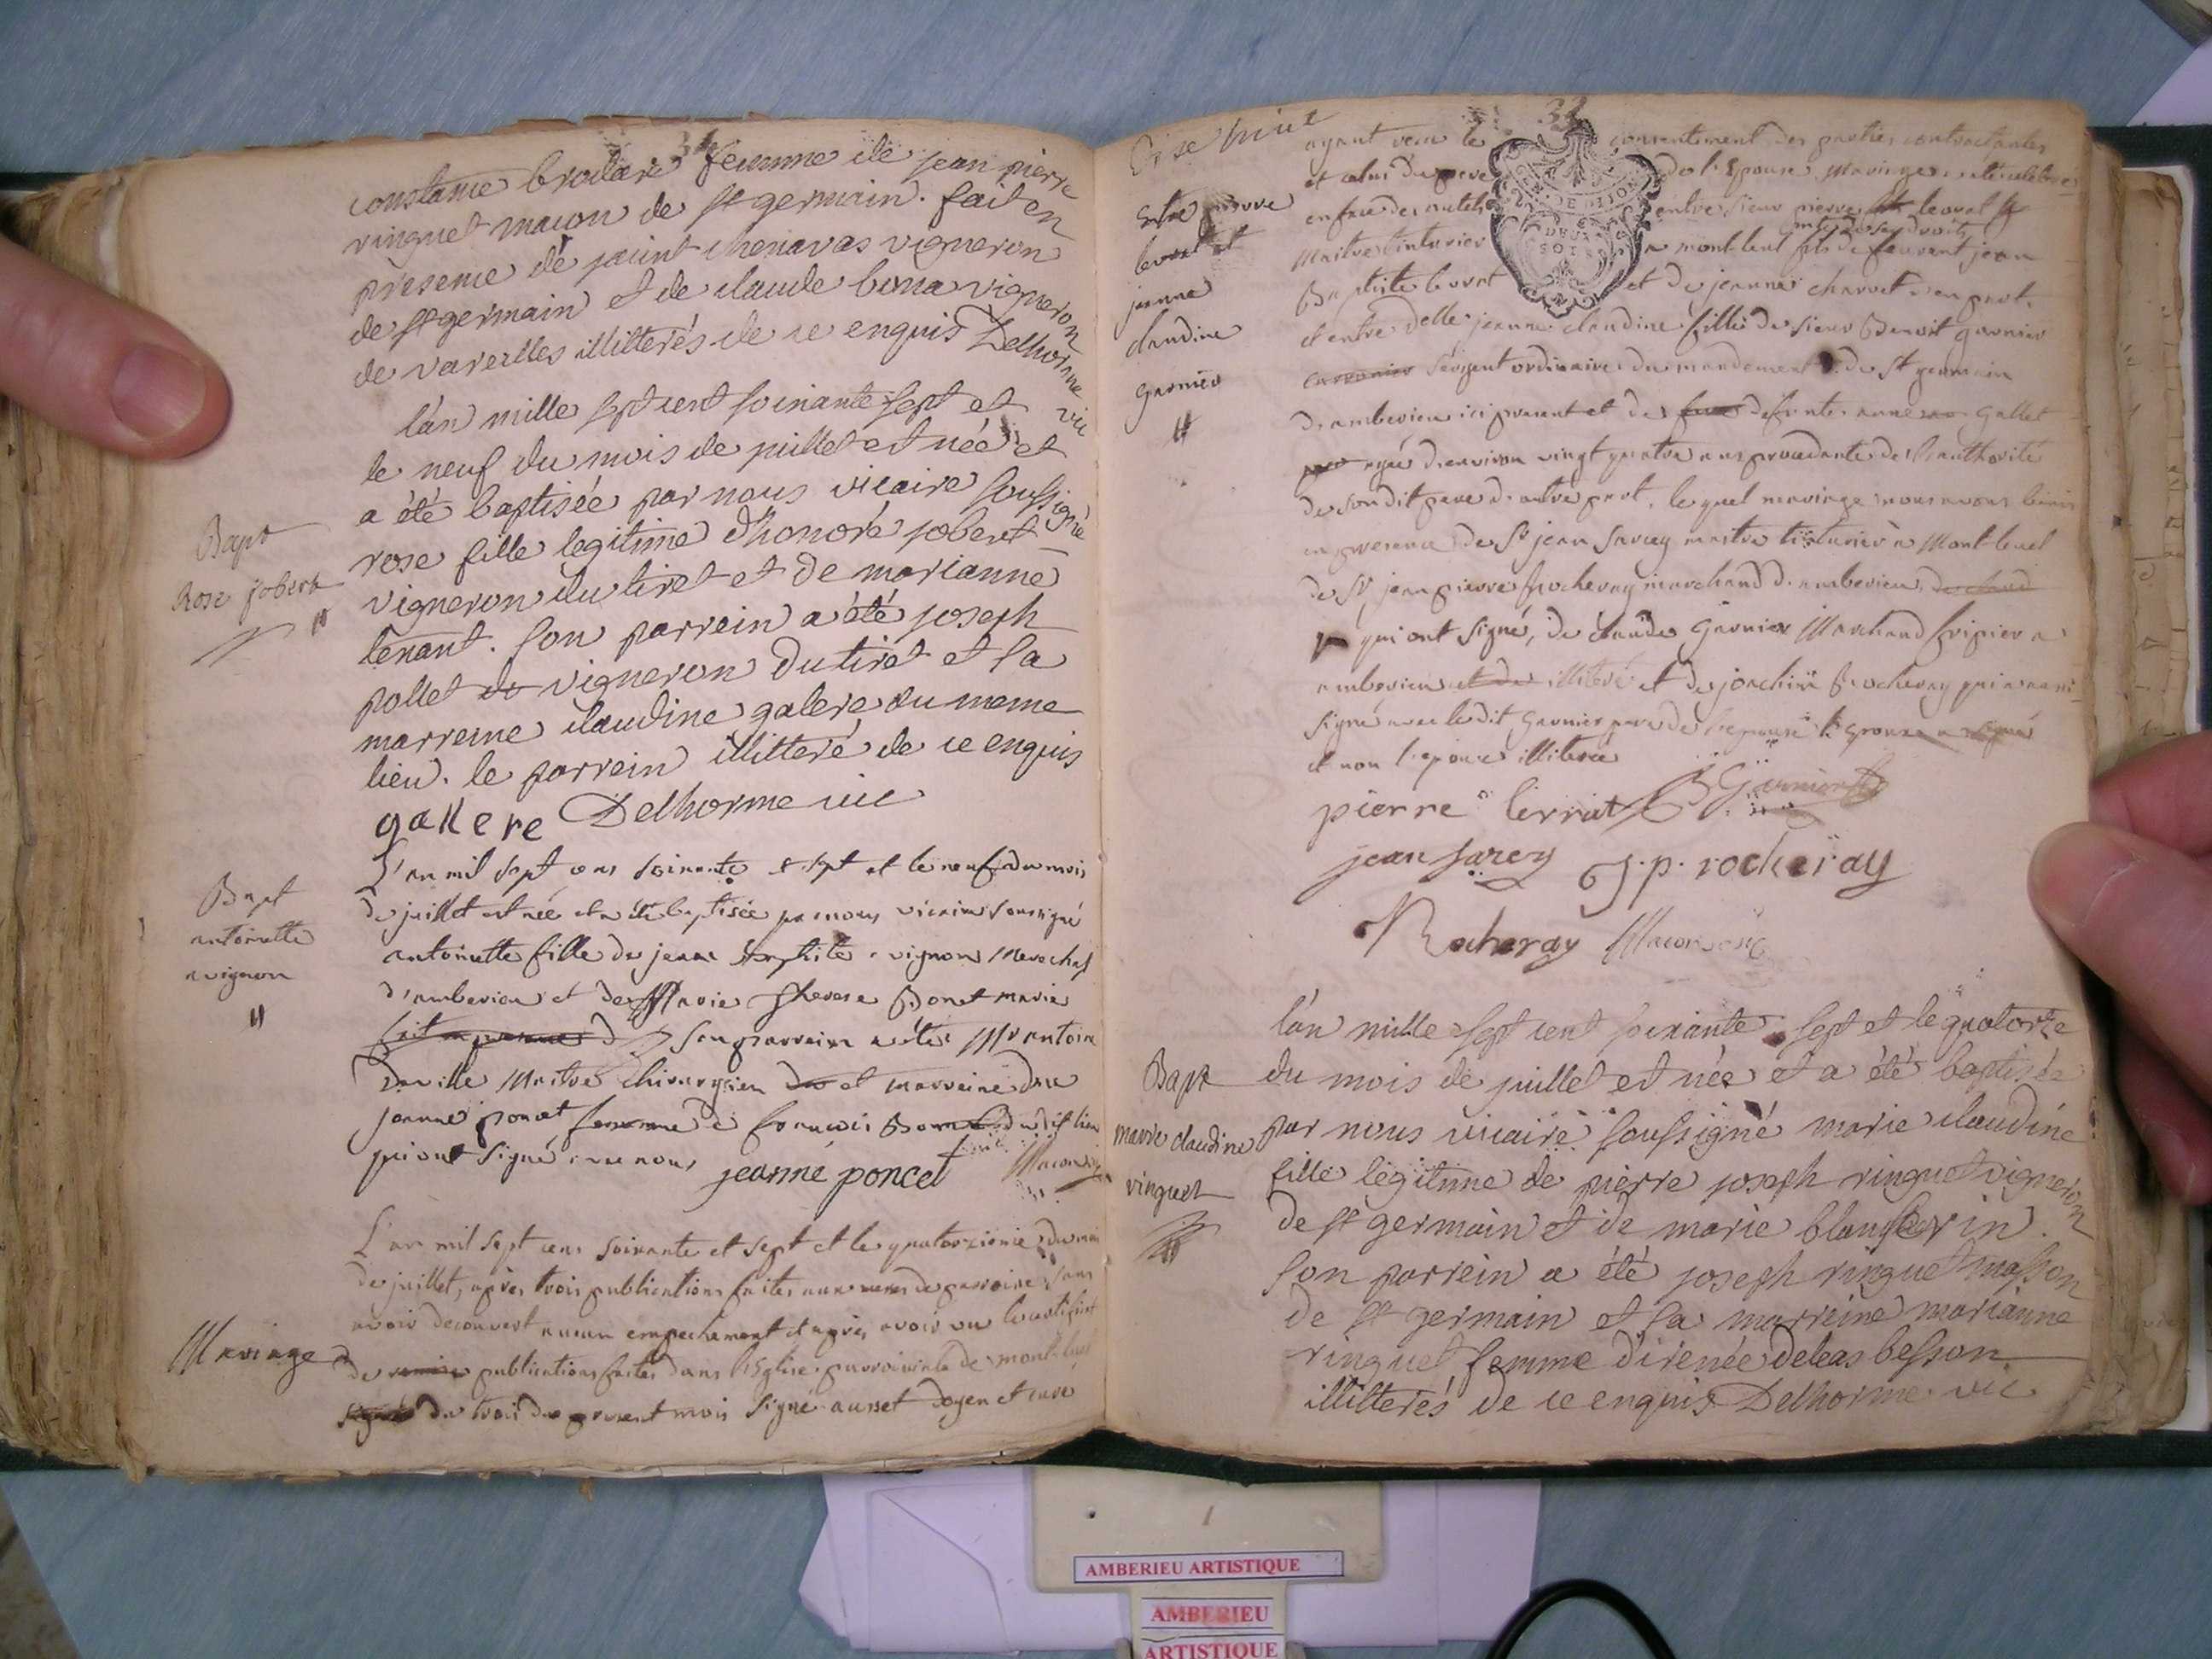 constance femme de jean pierre
ringuet macon de st germain. fait en
presence de chenavas vigneron
de st germain et de claude bona vigneron
de vareilles illitterés de ce enquis Delhorme
vic
Bapt
Rose jobert
l'an mille sept cent soixante sept et
le neuf du mois de juillet est née et
a été baptisée par nous vicaire soussigné
rose fille legitime d'honoré jobert
vigneron du tiret et de marianne
tenant. son parrein a été joseph
pollet de vigneron du tiret et sa
marreine claudine galere du meme
lieu. le parrein illitteré de ce enquis
gallere Delhorme vic
Bapt
antoinette
avignon
L'an mil sept cens soixante et sept et le neuf du mois
de juillet est née et a été baptisée par nous vicaire soussigné
antoinette fille de jean baptiste avignon Marechal
d'amberieu et de Marie therese Bonet marié
son parrein a été Mr antoin
Maitre chirurgien et marreine
jeanne poncet femme de francois du dit lieu
qui ont signé avec nous jeanne poncet
Mariage
L'an mil sept cens soixante et sept et le quatorzieme du mois
de juillet, après trois publications faites aux de paroisse sans
avoir decouvert aucun empechement et après avoir vu le certificat
de publications faites dans l'Eglise parroissiale de mont-luel
du trois du present mois signé ausset doyen et curé
33
ayant vecu le consentement des parties contractantes
et celui du pere de l'Epouse Mariage a été celebré
Entre pierre
et
jeanne
claudine
garnier
entre sieur pierre
Maitre tinturier a mont-luel fils de jean
Baptiste et de jeanne charvet d'en part.
et entre delle jeanne claudine fille de sieur Benoit garnier
sergent ordinaire du mandement de St germain
d'amberieu ici present et de defunte anne Gallet
agée d'environ vingt quatre ans procedante de l'authorité
de son dit pere d'autre part. lequel mariage nous avons béni
en presence de Sr jean sarcey maitre tinturier à Mont-luel
de Sr jean pierre Rocheray marchand d'amberieu
qui ont signé, de claude Garnier Marchand fripier a
amberieu illiteré et de joachim Rocheray qui a aussi
signé avec le dit Garnier pere de l'epouse
et non l'epouse illiterée
pierre
B Garnier
jean sarcey j.p. rocheray
Rocheray Macon vic
Bapt
marie claudine
ringuet
l'an mille sept cent soixante sept et le quatorze
du mois de juillet est née et a été baptisée
par nous vicaire soussigné marie claudine
fille legitime de pierre joseph ringuet vigneron
de st germain et de marie
son parrein a été joseph ringuet masson
de st germain et sa marreine marianne
ringuet femme d'irenée deleas besson
illitterés de ce enquis Delhorme vic
AMBERIEU ARTISTIQUE
AMBERIEU
ARTISTIQUE